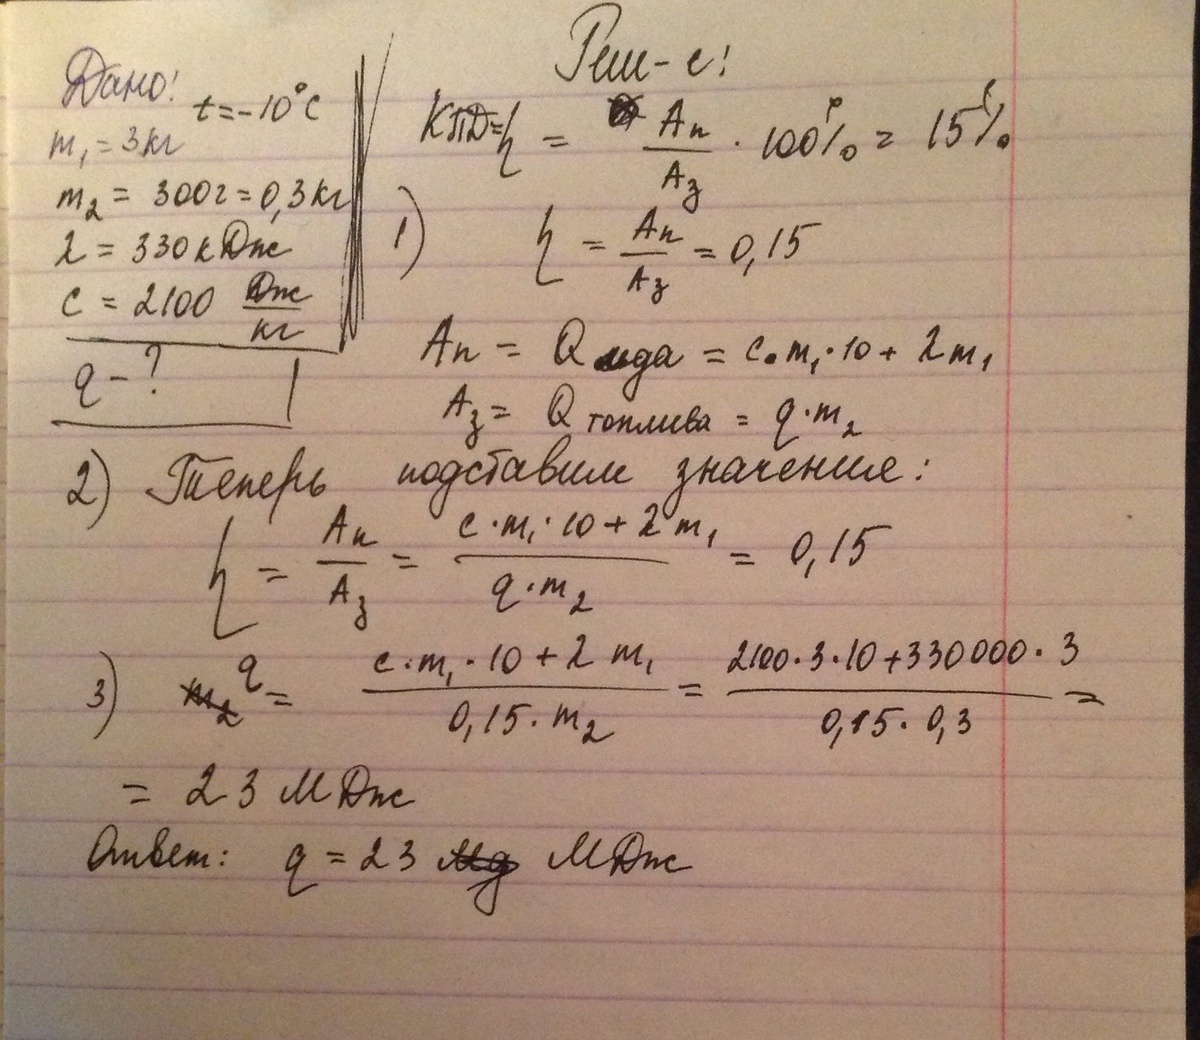 Дано!
t = -10°C
m₁ = 3кг
m₂ = 300г = 0,3кг
λ = 330кДж
c = 2100 Дж/кг
q - ?
Реш-е!
КПД = η = Aп/Aз · 100% = 15%
1) η = Aп/Aз = 0,15
Aп = Q льда = c · m₁ · 10 + λm₁
Aз = Q топлива = q · m₂
2) Теперь подставим значения:
η = Aп/Aз = (c · m₁ · 10 + λ m₁)/(q · m₂) = 0,15
3) q = (c · m₁ · 10 + λ m₁)/(0,15 · m₂) = (2100 · 3 · 10 + 330000 · 3)/(0,15 · 0,3) =
= 23 МДж
Ответ: q = 23 МДж